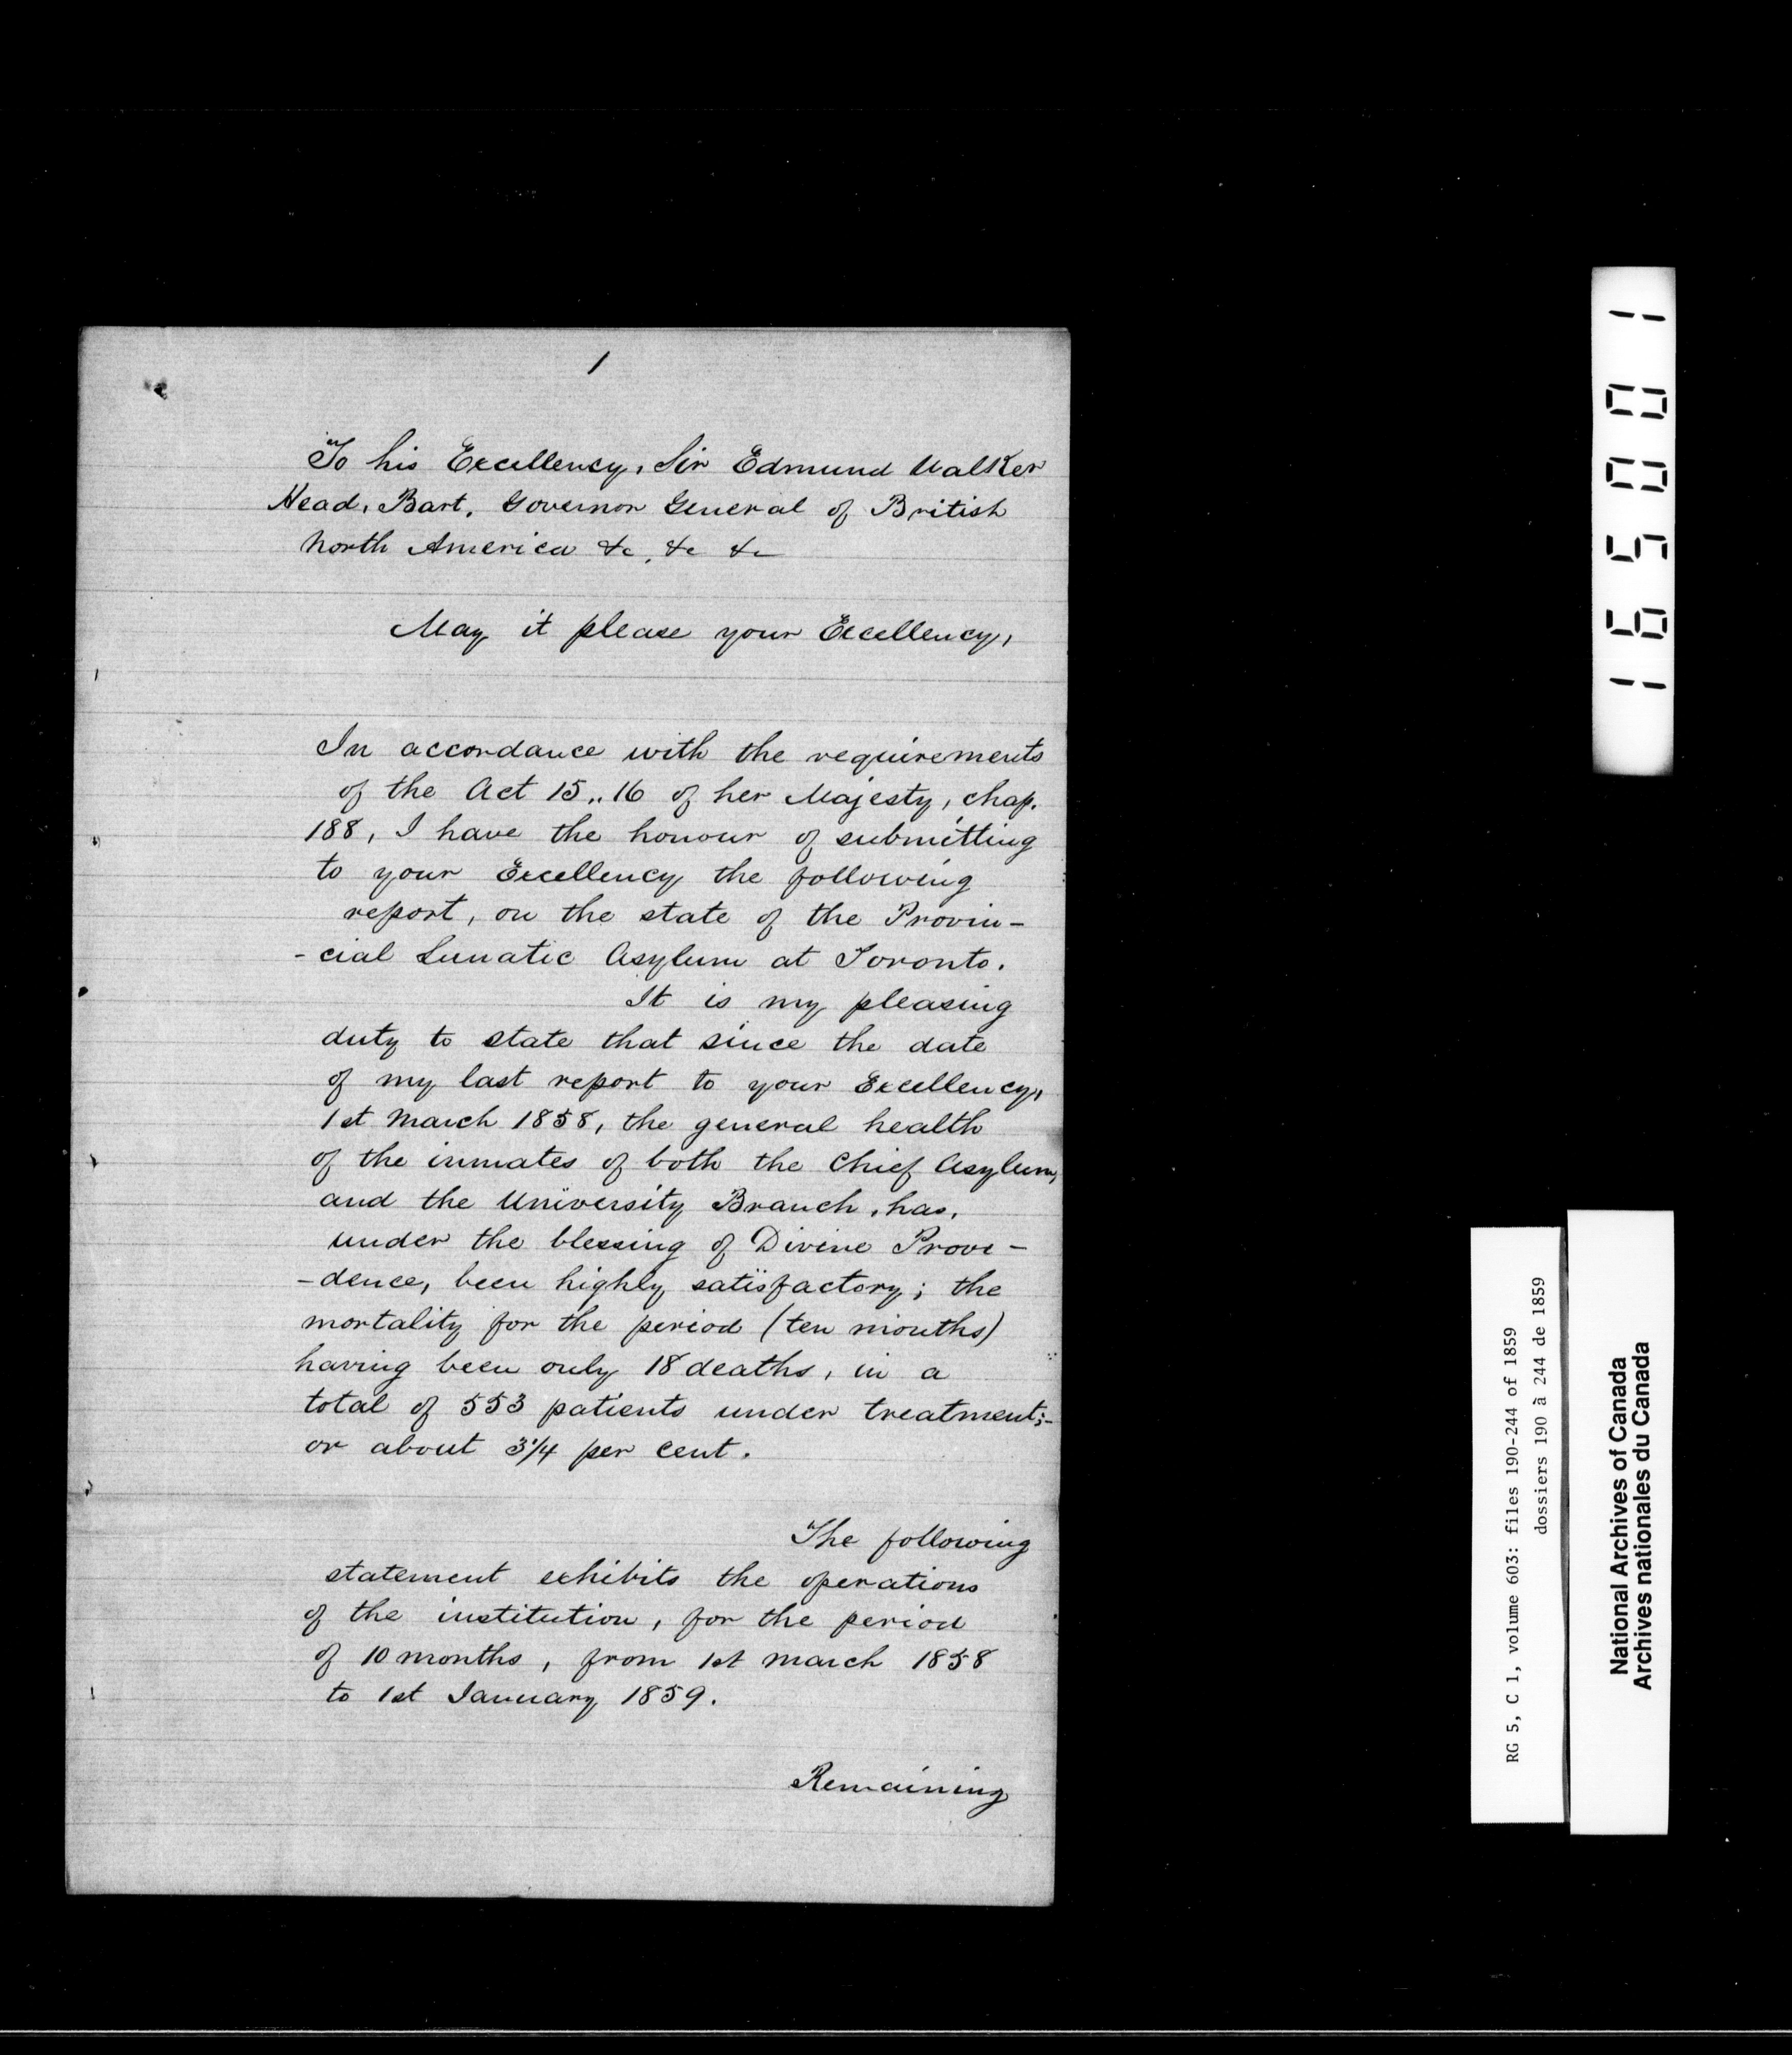 1
To his Excellency, Sir Edmund Walker
Head, Bart. Governor General of British
North America &c, &c &c
May it please your Excellency,
In accordance with the requirements
of the Act 15 ,, 16 of her Majesty, chap.
188, I have the honour of submitting
to your Excellency the following
report, on the state of the Provin-
-cial Lunatic Asylum at Toronto.
It is my pleasing
duty to state that since the date
of my last report to your Excellency,
1st March 1858, the general health
of the inmates of both the Chief Asylum,
and the University Branch, has,
under the blessing of Divine Provi-
-dence, been highly satisfactory; the
mortality for the period (ten months)
having been only 18 deaths, in a
total of 553 patients under treatment;-
or about 3 1/4 per cent.
The following
statement exhibits the operations
of the institution, for the period
of 10 months, from 1st March 1858
to 1st January 1859.
Remaining
165001
RG 5, C 1, volume 603: files 190-244 of 1859
dossiers 190 à 244 de 1859
National Archives of Canada
Archives nationales du Canada